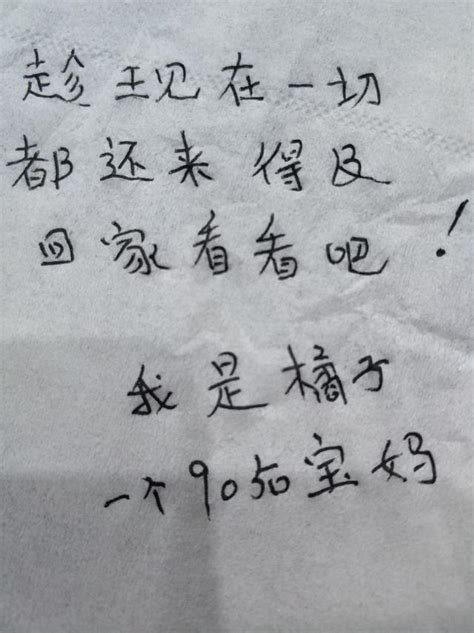 趁现在一切
都还来得及
回家看看吧！
我是橘子
一个90后宝妈